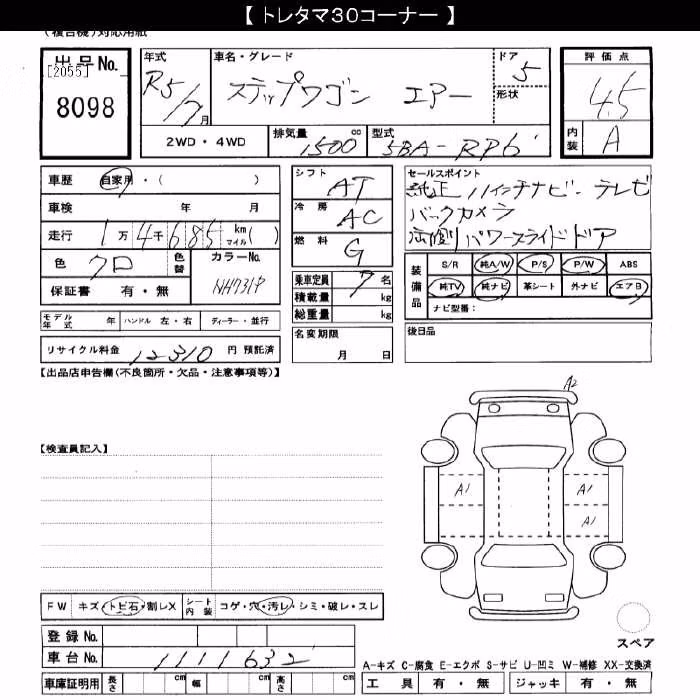 【 トレタマ30コーナー 】
(複合機)対応用紙
出品No.
[2055]
8098
年式 R5/7月
車名・グレード
ステップワゴン エアー
ドア 5
形状
評価点
4.5
内装 A
2WD・4WD
排気量 1500 cc
型式 5BA-RP6
車歴 自家用・( )
車検 年 月
走行 1万4千685 km マイル( )
色 クロ 色替 カラーNo. NH731P
保証書 有・無
シフト AT
冷房 AC
燃料 G
乗車定員 7名
積載量 kg
総重量 kg
セールスポイント
純正 11インチナビ・テレビ
バックカメラ
両側パワースライドドア
装備品 S/R 純A/W P/S P/W ABS
純TV 純ナビ 革シート 外ナビ エアB
ナビ型番:
モデル年式 年 ハンドル 左・右 ディーラー・並行
名変期限
月 日
後日品
リサイクル料金 12310 円 預託済
【出品店申告欄(不良箇所・欠品・注意事項等)】
A2
【検査員記入】
A1 A1
A1
FW キズ・トビ石・割レX シート内装 コゲ・穴・汚レ・シミ・破レ・スレ
スペア
登録No.
車台No. 1111632
A-キズ C-腐食 E-エクボ S-サビ U-凹ミ W-補修 XX-交換済
車庫証明用 長さ cm 幅 cm 高さ cm
工具 有・無 ジャッキ 有・無